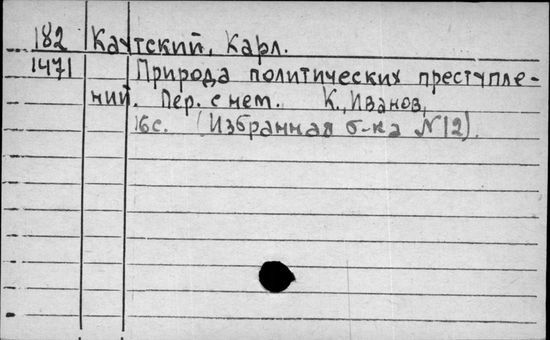 182 Каутский, Карл.
1471 Природа политических преступле-
ний. Пер. с нем. К., Иванов,
16с. (Избранная б-ка №12).